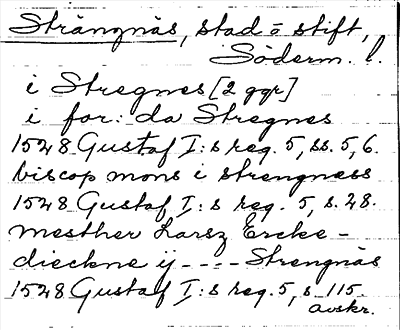 Strängnäs, stad o stift,
Söderm. l.
i Stregnes [2 ggr]
i for: da Stregnes
1528 Gustaf I:s reg. 5, ss. 5, 6.
biscop mons i strengness
1528 Gustaf I:s reg. 5, s. 28.
mesther Larsz Ercke-
dieckne y ---- Strengnäs
1528 Gustaf I:s reg. 5, s. 115.
avskr.